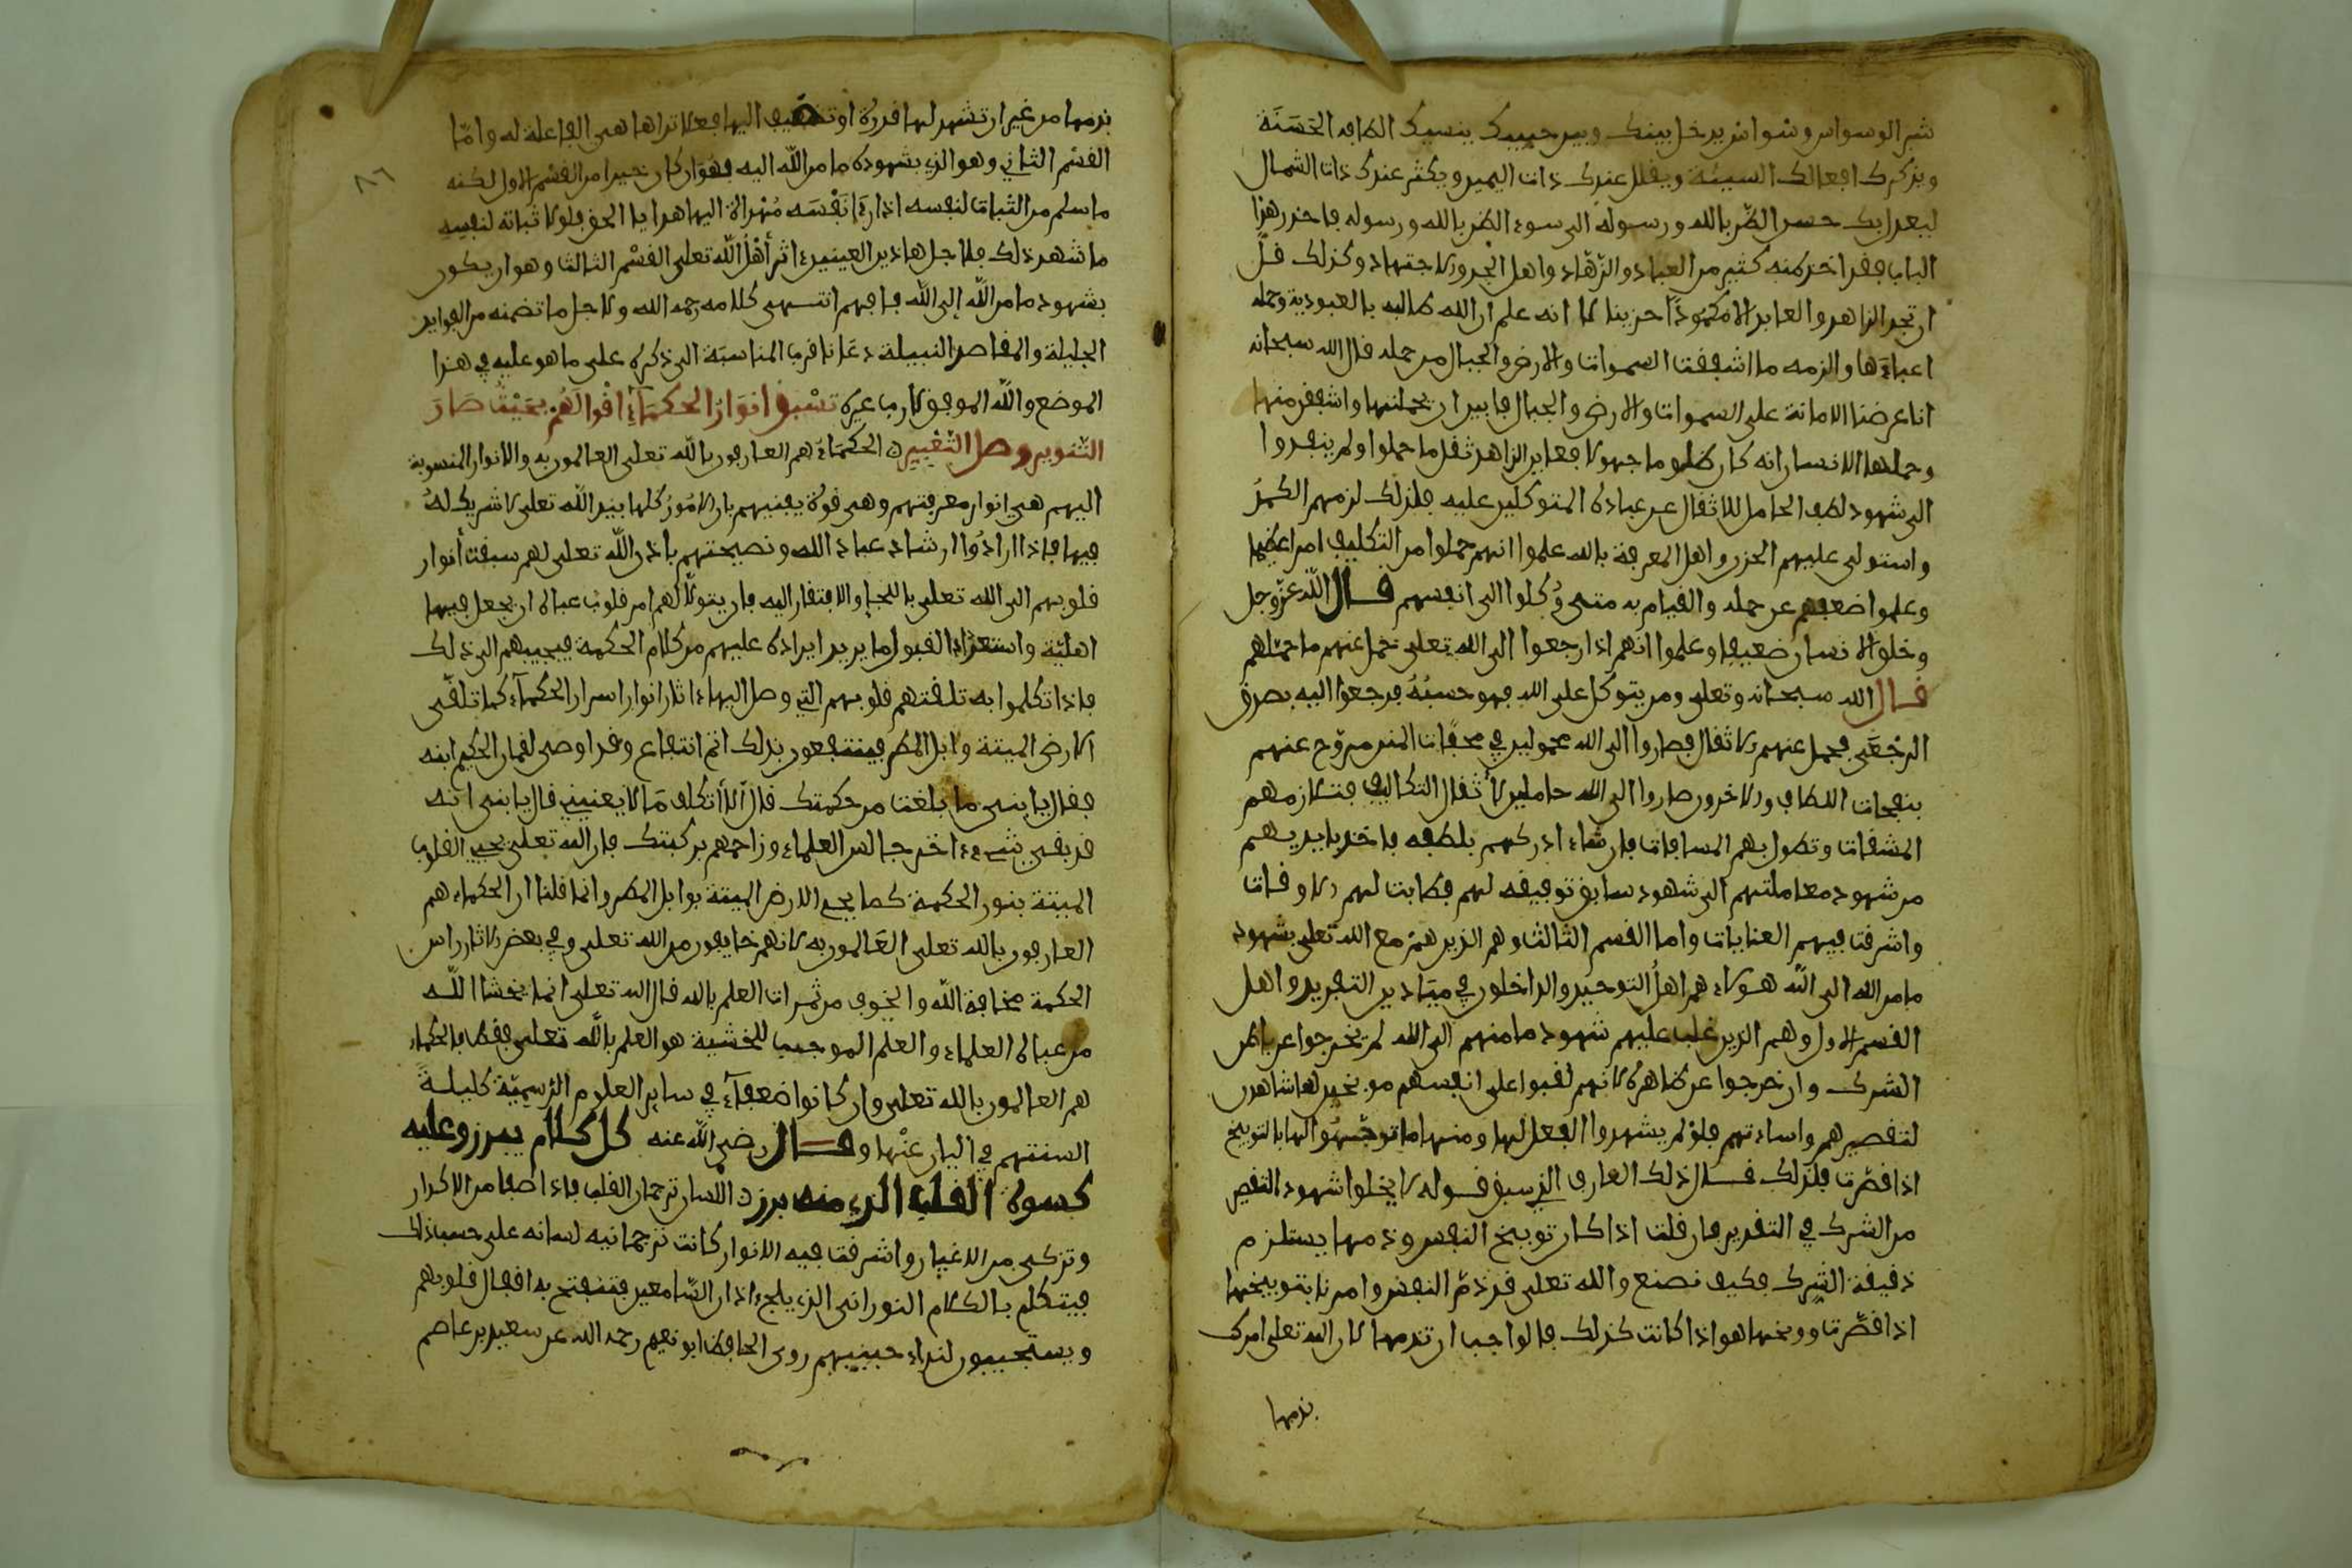 شر الوسواس وسواس يدخل بينك وبين حبيبك ينسيك الطافه الحسنة
ويذكرك افعالك السيئة ويقلل عندك ذات اليمين ويكثر عندك ذات الشمال
ليعدل بك حسن الظن بالله ورسوله الى سوء الظن بالله ورسوله فاحذر هذا
الباب فقد اخذ منه كثير من العباد والزهاد واهل الجد والاجتهاد وكذلك قل
ان تجد الزاهد والعابد الا مكمودا حزينا لما انه علم ان الله طالبه بالعبودية وحمله
اعباءها والزمه ما اشفقت السموات والارض والجبال من حمله قال الله سبحانه
انا عرضنا الامانة على السموات والارض والجبال فابين ان يحملنها واشفقن منها
وحملها الانسان انه كان ظلوما جهولا فعاين الزاهد ثقل ما حملوا ولم ينفدوا
الى شهود لطف الحامل للاثقال عن عباده المتوكلين عليه فلذلك لزمهم الكمد
واستولى عليهم الحزن واهل المعرفة بالله علموا انهم حملوا من التكليف امرا عظيما
وعلموا ضعفهم عن حمله والقيام به متى وُكلوا الى انفسهم قال الله عز وجل
وخلق الانسان ضعيفا وعلموا انهم اذا رجعوا الى الله تعلى حمل عنهم ما حمّلهم
قال الله سبحانه وتعلى ومن يتوكل على الله فهو حسبه فرجعوا اليه بصدق
الرجعى فحمل عنهم الاثقال فصاروا الى الله محمولين في محفات المنن مروح عنهم
بنفحات اللطاف والاخرون صاروا الى الله حاملين لاثقال التكاليف فتلازمهم
المشقات وتطول بهم المسافات فان شاء ادركهم بلطفه فاخذ بايديهم
من شهود معاملتهم الى شهود سابق توفيقه لهم فطابت لهم الاوقات
واشرقت فيهم العنايات واما القسم الثالث وهم الذين هم مع الله تعلى بشهود
ما من الله الى الله هولاء هم اهل التوحيد والداخلون في ميادين التفريد واهل
القسم الاول وهم الذين غلب عليهم شهود ما منهم الى الله لم يخرجوا عن باطن
الشرك وان خرجوا عن ظاهره لانهم لقبوا على انفسهم موبخين لها شاهدين
لتقصيرهم واساءتهم فلو لم يشهدوا الفعل لها ومنها ما توجهوا لها بالتوبيخ
اذا قصّرت فلذلك قال ذلك العارف الذي سبق قوله لا يخلوا شهود التقصير
من الشرك في التقدير فان قلت اذا كان توبيخ النفس وذمها يستلزم
دقيقة الشرك فكيف نصنع والله تعلى قد ذم النفس وامرنا بتوبيخها
اذا قصّرت ووبخها هو اذا كانت كذلك فالواجب ان تذمها لان الله تعلى امرك
بذمها
٨٦
بذمها من غير ان تشهد لها قدرة او تضيف اليها فعلا تراها هي الفاعلة له واما
القسم الثاني وهو الذي بشهوده ما من الله اليه فهو ان كان خيرا من القسم الاول لكنه
ما سلم من اثبات لنفسه اذ راى نفسه مهداة اليها هدايا الحق فلولا ثباته لنفسه
ما شهد ذلك فلاجل هاذين العينين ءاثر أهل الله تعلى القسم الثالث وهو ان يكون
بشهود ما من الله إلى الله فافهم انتهى كلامه رحمه الله ولاجل ما تضمنه من الفوايد
الجليلة والمقاصد النبيلة دعانا قرب المناسبة الى ذكره على ما هو عليه في هذا
الموضع والله الموفق لا رب غيره تسبق انوار الحكماء اقوالهم بحيث صار
التنوير وصل التعبير الحكماء هم العارفون بالله تعلى العالمون به والانوار المنسوبة
اليهم هي انوار معرفتهم وهي قوة يقينهم بان الامور كلها بيد الله تعلى لا شريك له
فيها فاذا ارادوا ارشاد عباد الله ونصيحتهم باذن الله تعلى لهم سبقت أنوار
قلوبهم الى الله تعلى باللجإ والافتقار اليه فان يتولّا لهم امر قلوب عباده ان يجعل فيها
اهلية واستعدادا لقبول ما يريد ايراده عليهم من كلام الحكمة فيجيبهم الى ذلك
فاذا تكلموا به تلقتهم قلوبهم التي وصل اليها ءاثار انوار اسرار الحكماء كما تلقى
الارض الميتة وابل المطر فينتفعون بذلك اتم انتفاع وقد اوصى لقمان الحكيم ابنه
فقال يا بنى ما بلغت من حكمتك قال ألا أتكلف ما لا يعنيني قال يا بنى انه
قد بقى شيء ءاخر جالس العلماء وزاحمهم بركبتك فان الله تعلى يحيي القلوب
الميتة بنور الحكمة كما يحيي الارض الميتة بوابل المطر وانما قلنا ان الحكماء هم
العارفون بالله تعلى العالمون به لانهم خايفون من الله تعلى وفي بعض الاثار راس
الحكمة مخافة الله والخوف من ثمرات العلم بالله قال الله تعلى انما يخشا الله
من عباده العلماء والعلم الموجب للخشية هو العلم بالله تعلى فقط فالحكماء
هم العالمون بالله تعلى وان كانوا ضعفآء في ساير العلوم الرسمية كليلة
السنتهم في البيان عنها وقال رضى الله عنه كل كلام يبرز وعليه
كسوة القلب الذي منه برز اللسان ترجمان القلب فاذا صفا من الاكدار
وتزكى من الاغيار واشرقت فيه الانوار كانت ترجمانية لسانه على حسب ذلك
فيتكلم بالكلام النوراني الذي يلج ءاذان السّامعين فتنفتح به اقفال قلوبهم
ويستجيبون لنداء حبيبهم روى الحافظ ابو نعيم رحمه الله عن سعيد بن عاصم